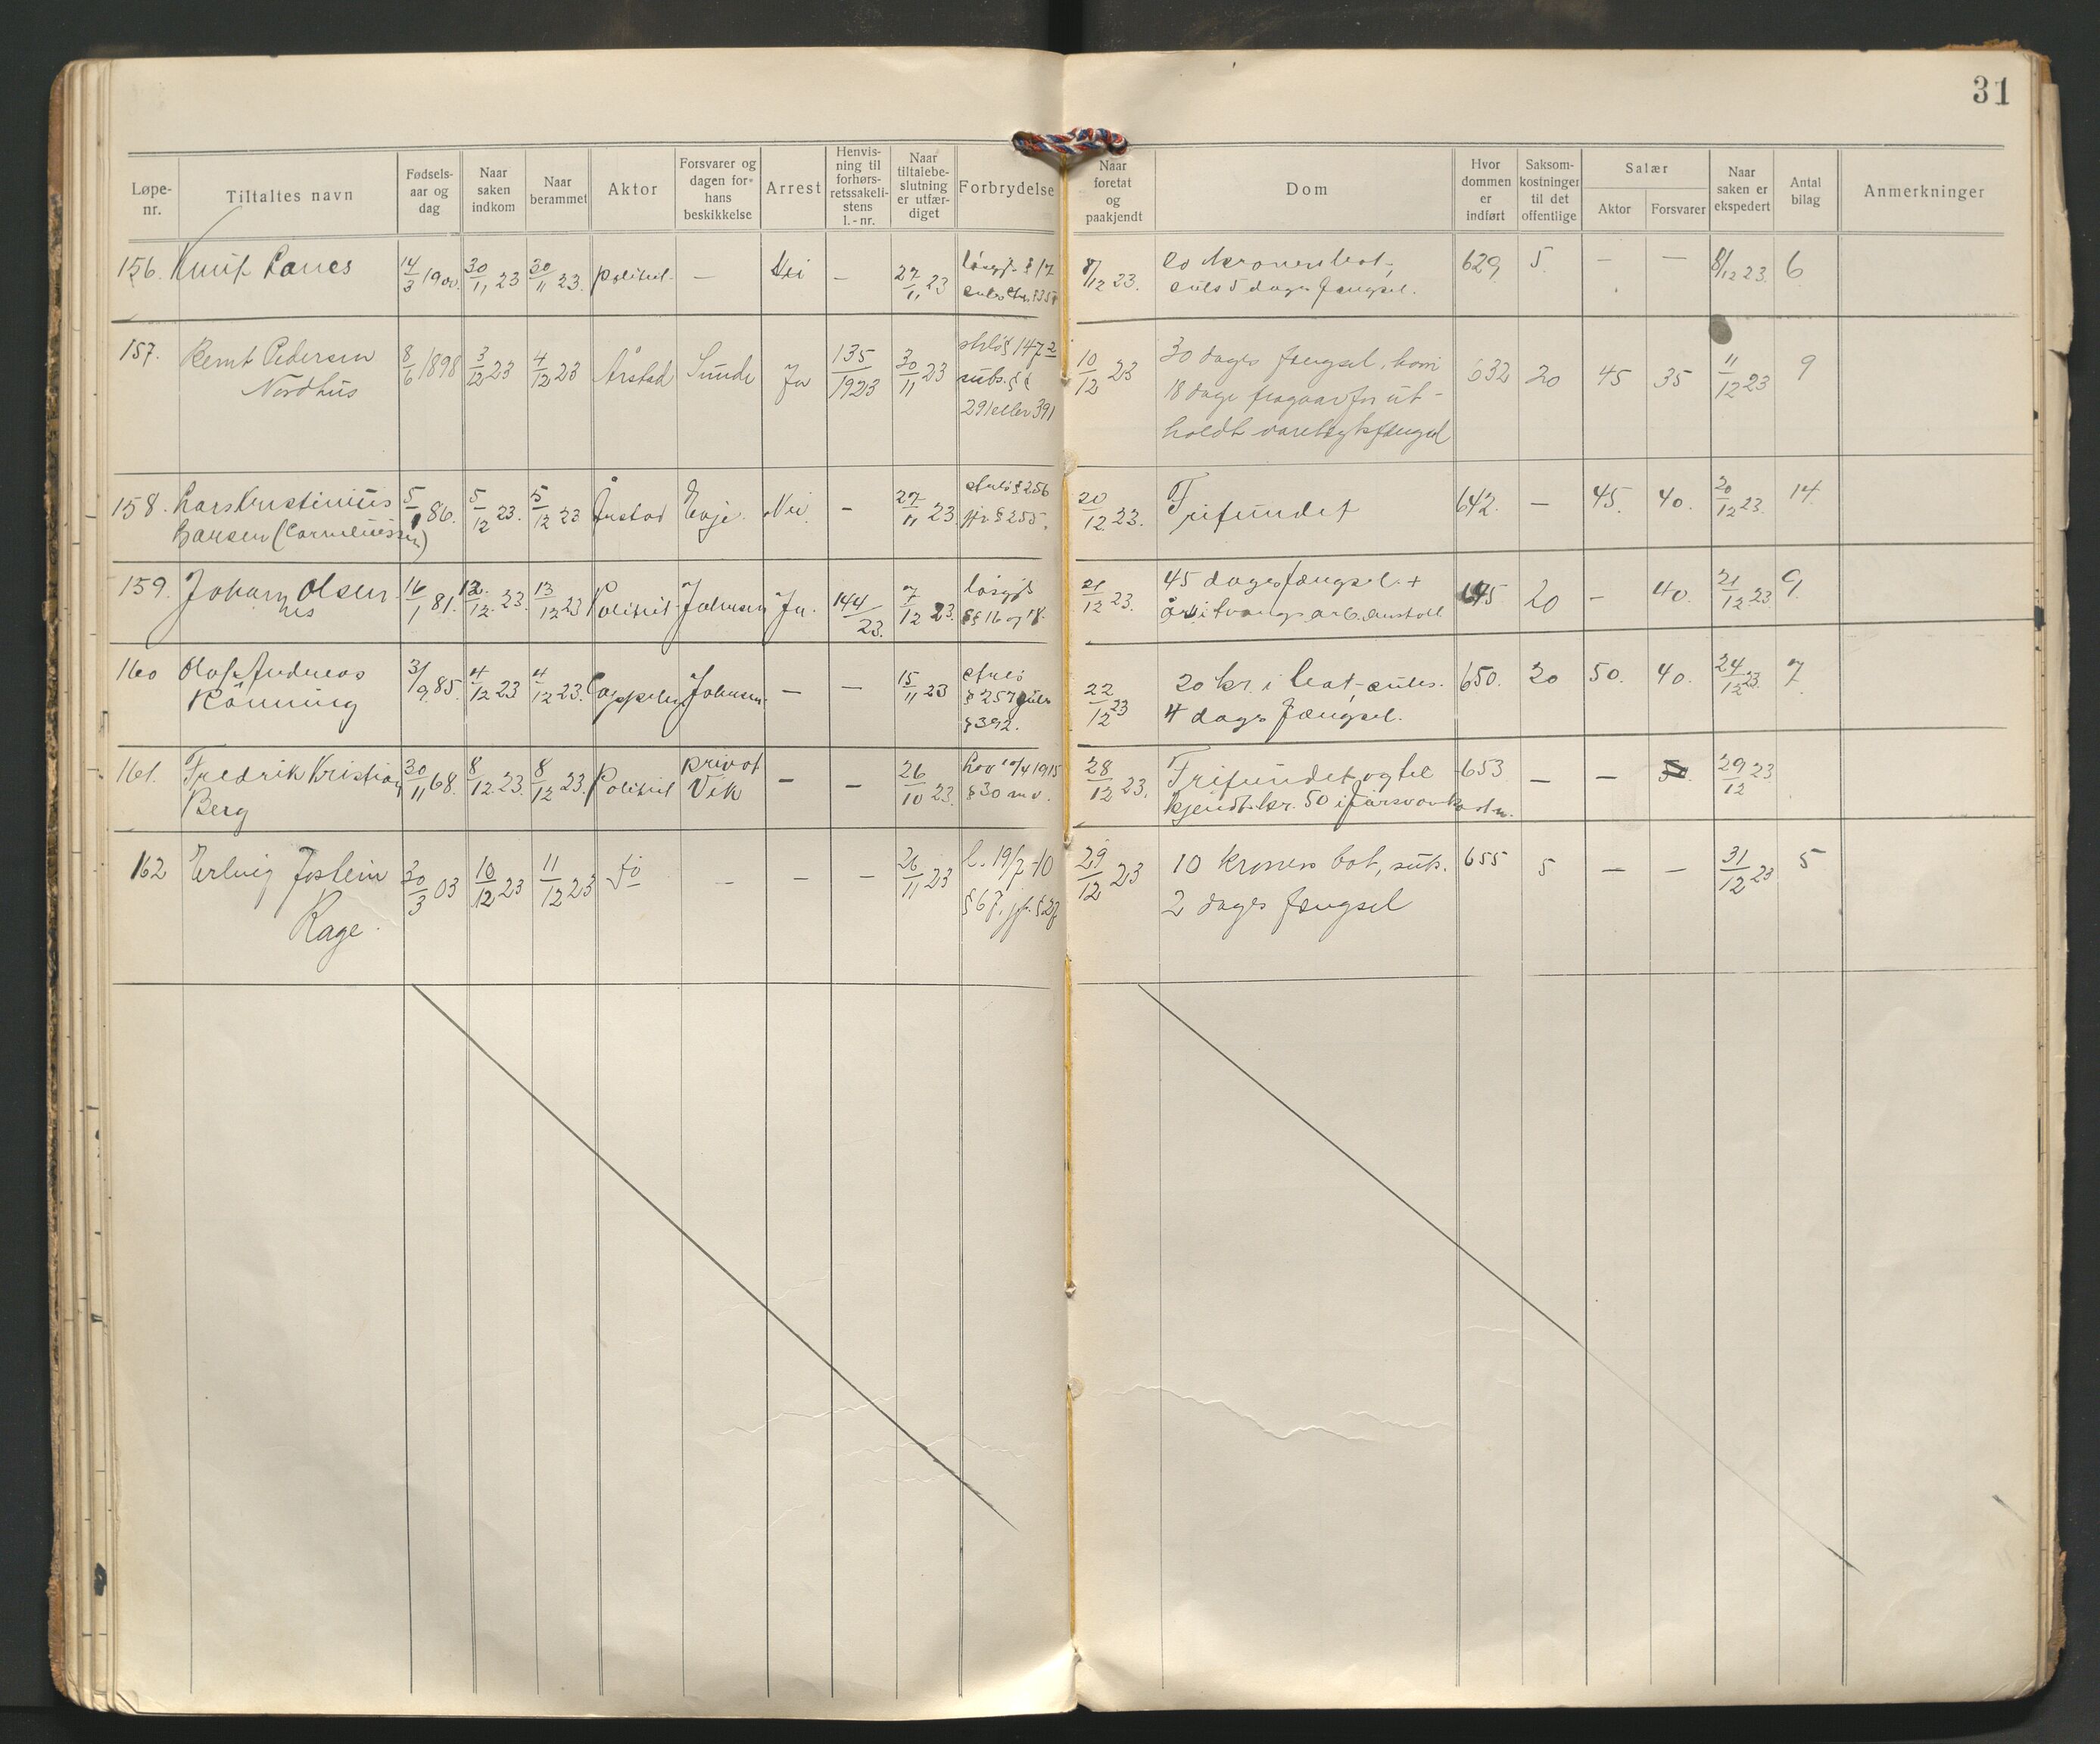 31
Løpe-nr. Tiltaltes navn Fødsels-aar og dag Naar saken indkom Naar berammet Aktor Forsvarer og dagen for hans beskikkelse Arrest Henvis-ning til forhørs-retssakeli-stens l.-nr. Naar tiltalebe-slutning er utfær-diget Forbrydelse Naar foretat og paakjendt Dom Hvor dommen er indført Saksom-kostninger til det offentlige Salær Aktor Forsvarer Naar saken er ekspedert Antal bilag Anmerkninger
156. Knut 14/3 1900. 30/11 23 30/11 23. Politiet. — Nei — 27/11 23 løsgjf. § 17 8/12 23. 629 5. — — 8/12 23. 6
subs 5 dages fængsel.
157. Bernt Pedersen 8/6 1898 3/12 23 4/12 23 Årstad Sunde Ja 135/1923 30/11 23 strlö § 147 2 10/12 23 30 dages fængsel, hvori 632 20 45 35 11/12 23 9
Nordhus subs. §§ 18 dage fragaar for ut-
291 eller 391 holdt varetegtsfængsel
158. Lars Kristinius 5/1 86. 5/12 23. 5/12 23 Årstad Evje. Nei — 27/11 23. strlö § 256 20/12 23. Frifundet 642. — 45. 40. 20/12 23. 14
Larsen (Corneliussen) jfr. § 255.
159. Johan Olsen 16/1 81. 12/12. 23. 13/12 23 Politiet Johnsen Ja. 144/23. 7/12 23. løsgjf 21/12 23. 45 dages fængsel + 645 20 — 40. 21/12 23 9.
nes §§ 16 og 18. år i tvangsarb.anstalt
160 Olaf Andreas 3/9 85. 4/12 23 4/12 23. Cappelen Johnsen — — 15/11 23 strlö 22/12 23 20 kr. i bot - subs. 650. 20 50. 40. 24/12 23. 7
Rönning § 257 subs 4 dages fængsel.
§ 392.
161. Fredrik Kristian 30/11 68. 8/12. 23. 8/12 23. Politiet privat Vik — — 26/10 23. Lov 10/4 1915 28/12 23. Frifundet og til 653 — — 29/12 23
Berg § 30 m.v. kjendt kr. 50 i forsvarkostn.
162 Erling Jostein 30/3 03 10/12 23 11/12 23 do — — — 26/11 23 l. 19/7-10 29/12 23 10 kroners bot, subs. 655 5 — — 31/12 23 5
Rage. § 67, jfr. § 27 2 dages fængsel